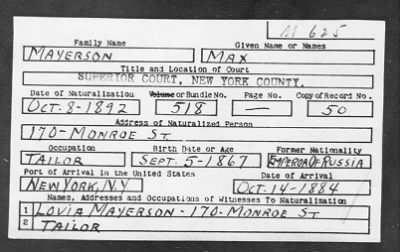 M 625
Family Name Given Name or Names
MAYERSON MAX
Title and Location of Court
SUPERIOR COURT, NEW YORK COUNTY.
Date of Naturalization Volume or Bundle No. Page No. Copy of Record No.
OCT-8-1892 518 — 50
Address of Naturalized Person
170-MONROE ST
Occupation Birth Date or Age Former Nationality
TAILOR SEPT-5-1867 EMPEROR OF RUSSIA
Port of Arrival in the United States Date of Arrival
NEW YORK, N.Y OCT-14-1884
Names, Addresses and Occupations of Witnesses To Naturalization
1 LOVIA MAYERSON-170-MONROE ST
2 TAILOR